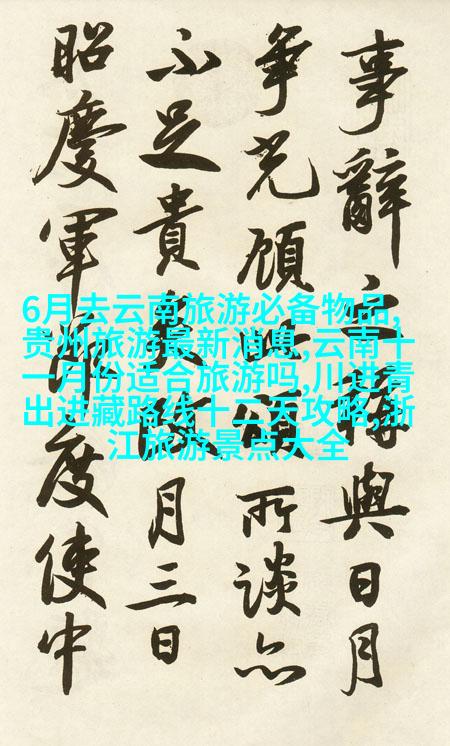 事辭之與日月
争光顧頌所談亦
不足貴月三日
昭慶軍節度使中
6月去云南旅游必备物品,
贵州旅游最新消息,云南十
一月份适合旅游吗,川进青
出进藏路线十二天攻略,浙
江旅游景点大全